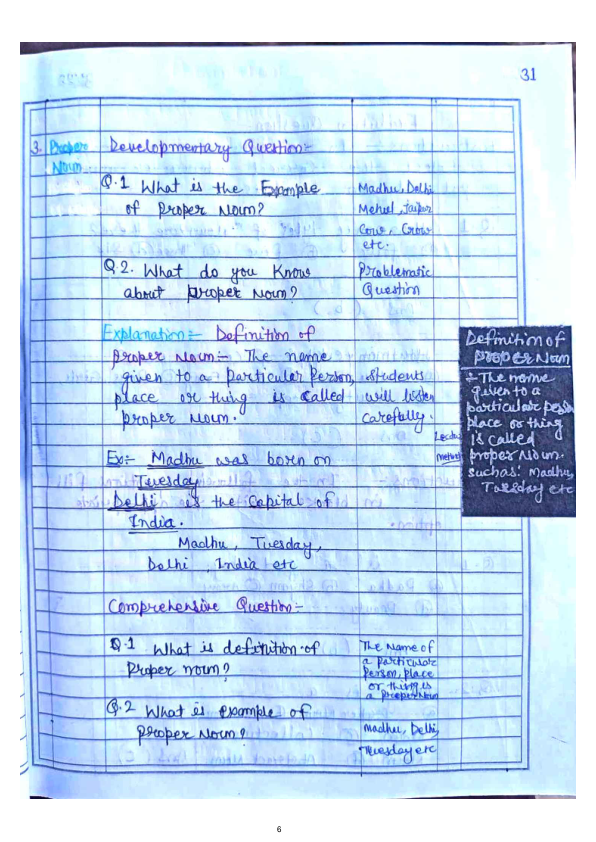 31
3. Proper Noun
Developmentary Question:-
Q.1 What is the Example
of Proper Noun?
Madhu, Delhi
Mehul, Jaipur
Cow, Crow
etc.
Q 2. What do you Know
about proper Noun?
Problematic
Question
Explanation:- Definition of
proper Noun:- The name
given to a particular person,
place or thing is called
proper Noun.
students
will listen
carefully.
Lecture
method
Definition of
proper Noun
:- The name
given to a
particular person
place or thing
is called
proper Noun.
such as: Madhu,
Tuesday etc
Ex:- Madhu was born on
Tuesday
Delhi is the Capital of
India.
Madhu, Tuesday,
Delhi, India etc
Comprehensive Question:-
Q.1 What is definition of
Proper noun?
The Name of
a particular
person, place
or thing is
a proper Noun
Q.2 What is example of
proper Noun?
Madhu, Delhi,
Tuesday etc
6